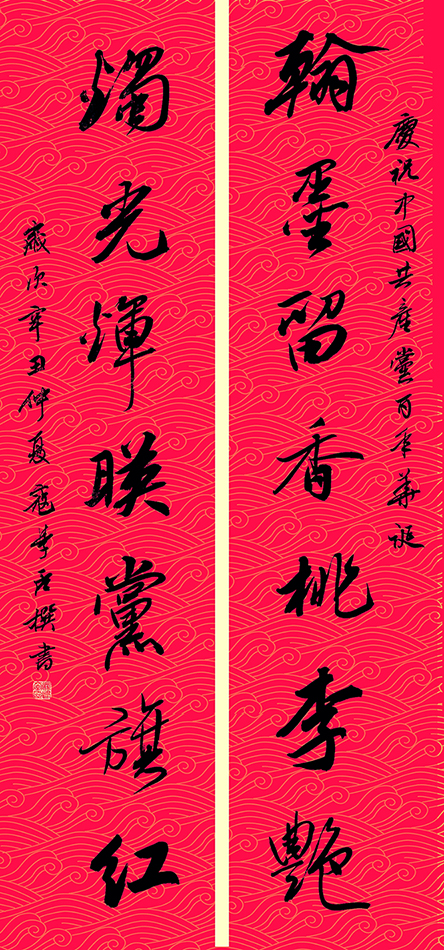 慶祝中國共產黨百年華誕
翰墨留香桃李艷
燭光煇暎黨旗紅
歲次辛丑仲夏撰書